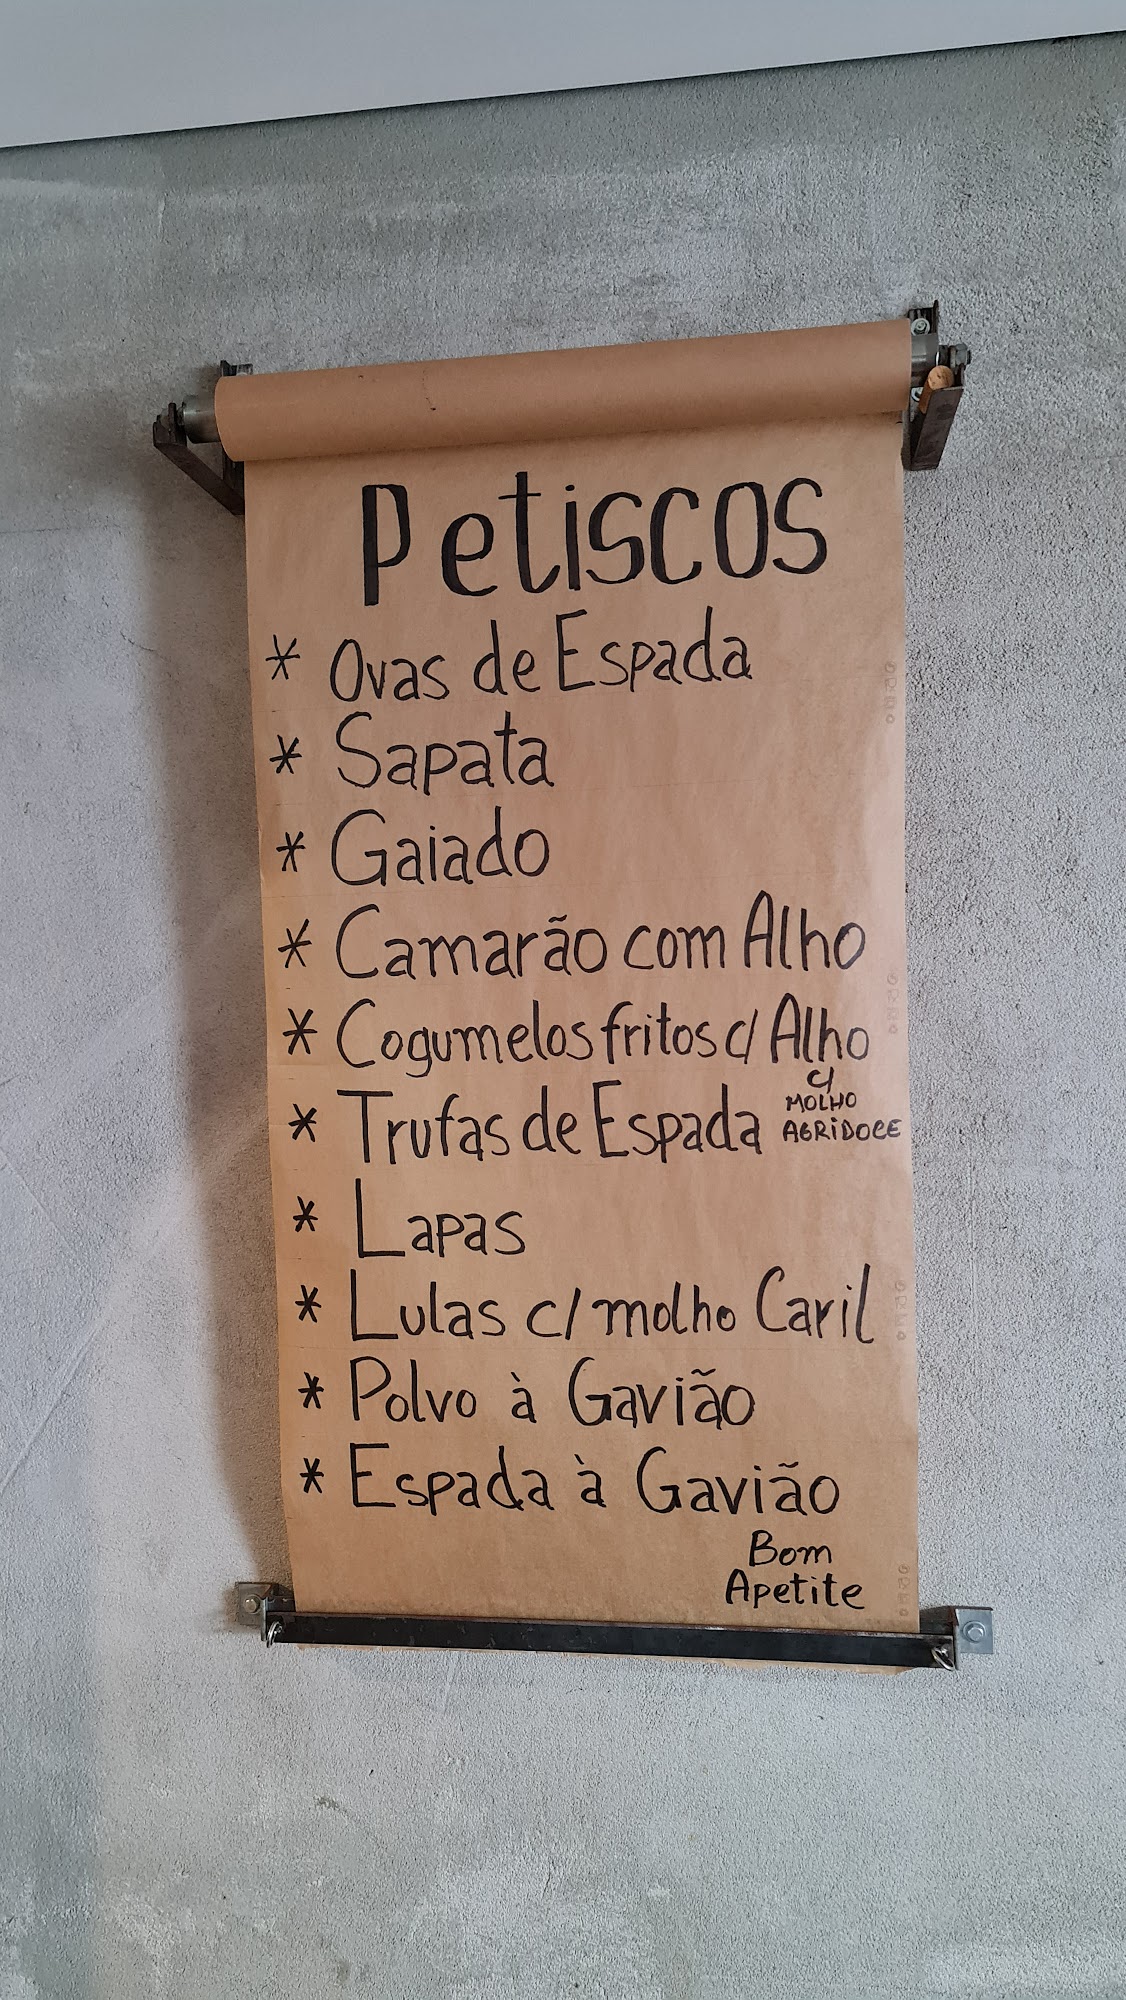 Petiscos
* Ovas de Espada
* Sapata
* Gaiado
* Camarão com Alho
* Cogumelos fritos c/ Alho
* Trufas de Espada c/ MOLHO AGRIDOCE
* Lapas
* Lulas c/ molho Caril
* Polvo à Gavião
* Espada à Gavião
Bom
Apetite